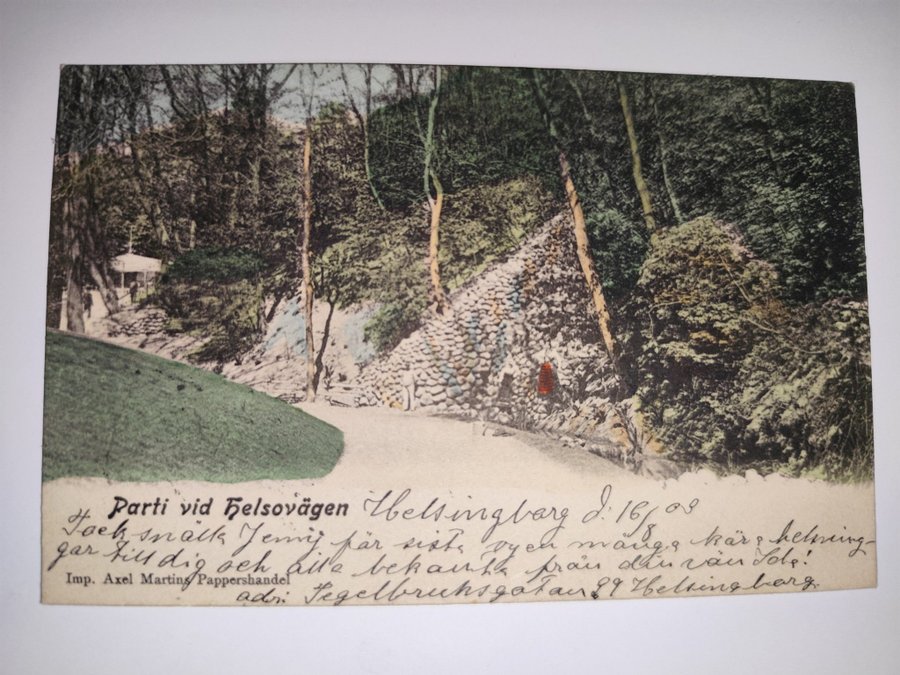 Parti vid Helsovägen Helsingborg d. 16/8 03
Tack snälla Jenny för sista vyen många kära helsning-
gar till dig och alla bekanta från din vän
Imp. Axel Martins Pappershandel
adr: Tegelbruksgatan 29 Helsingborg